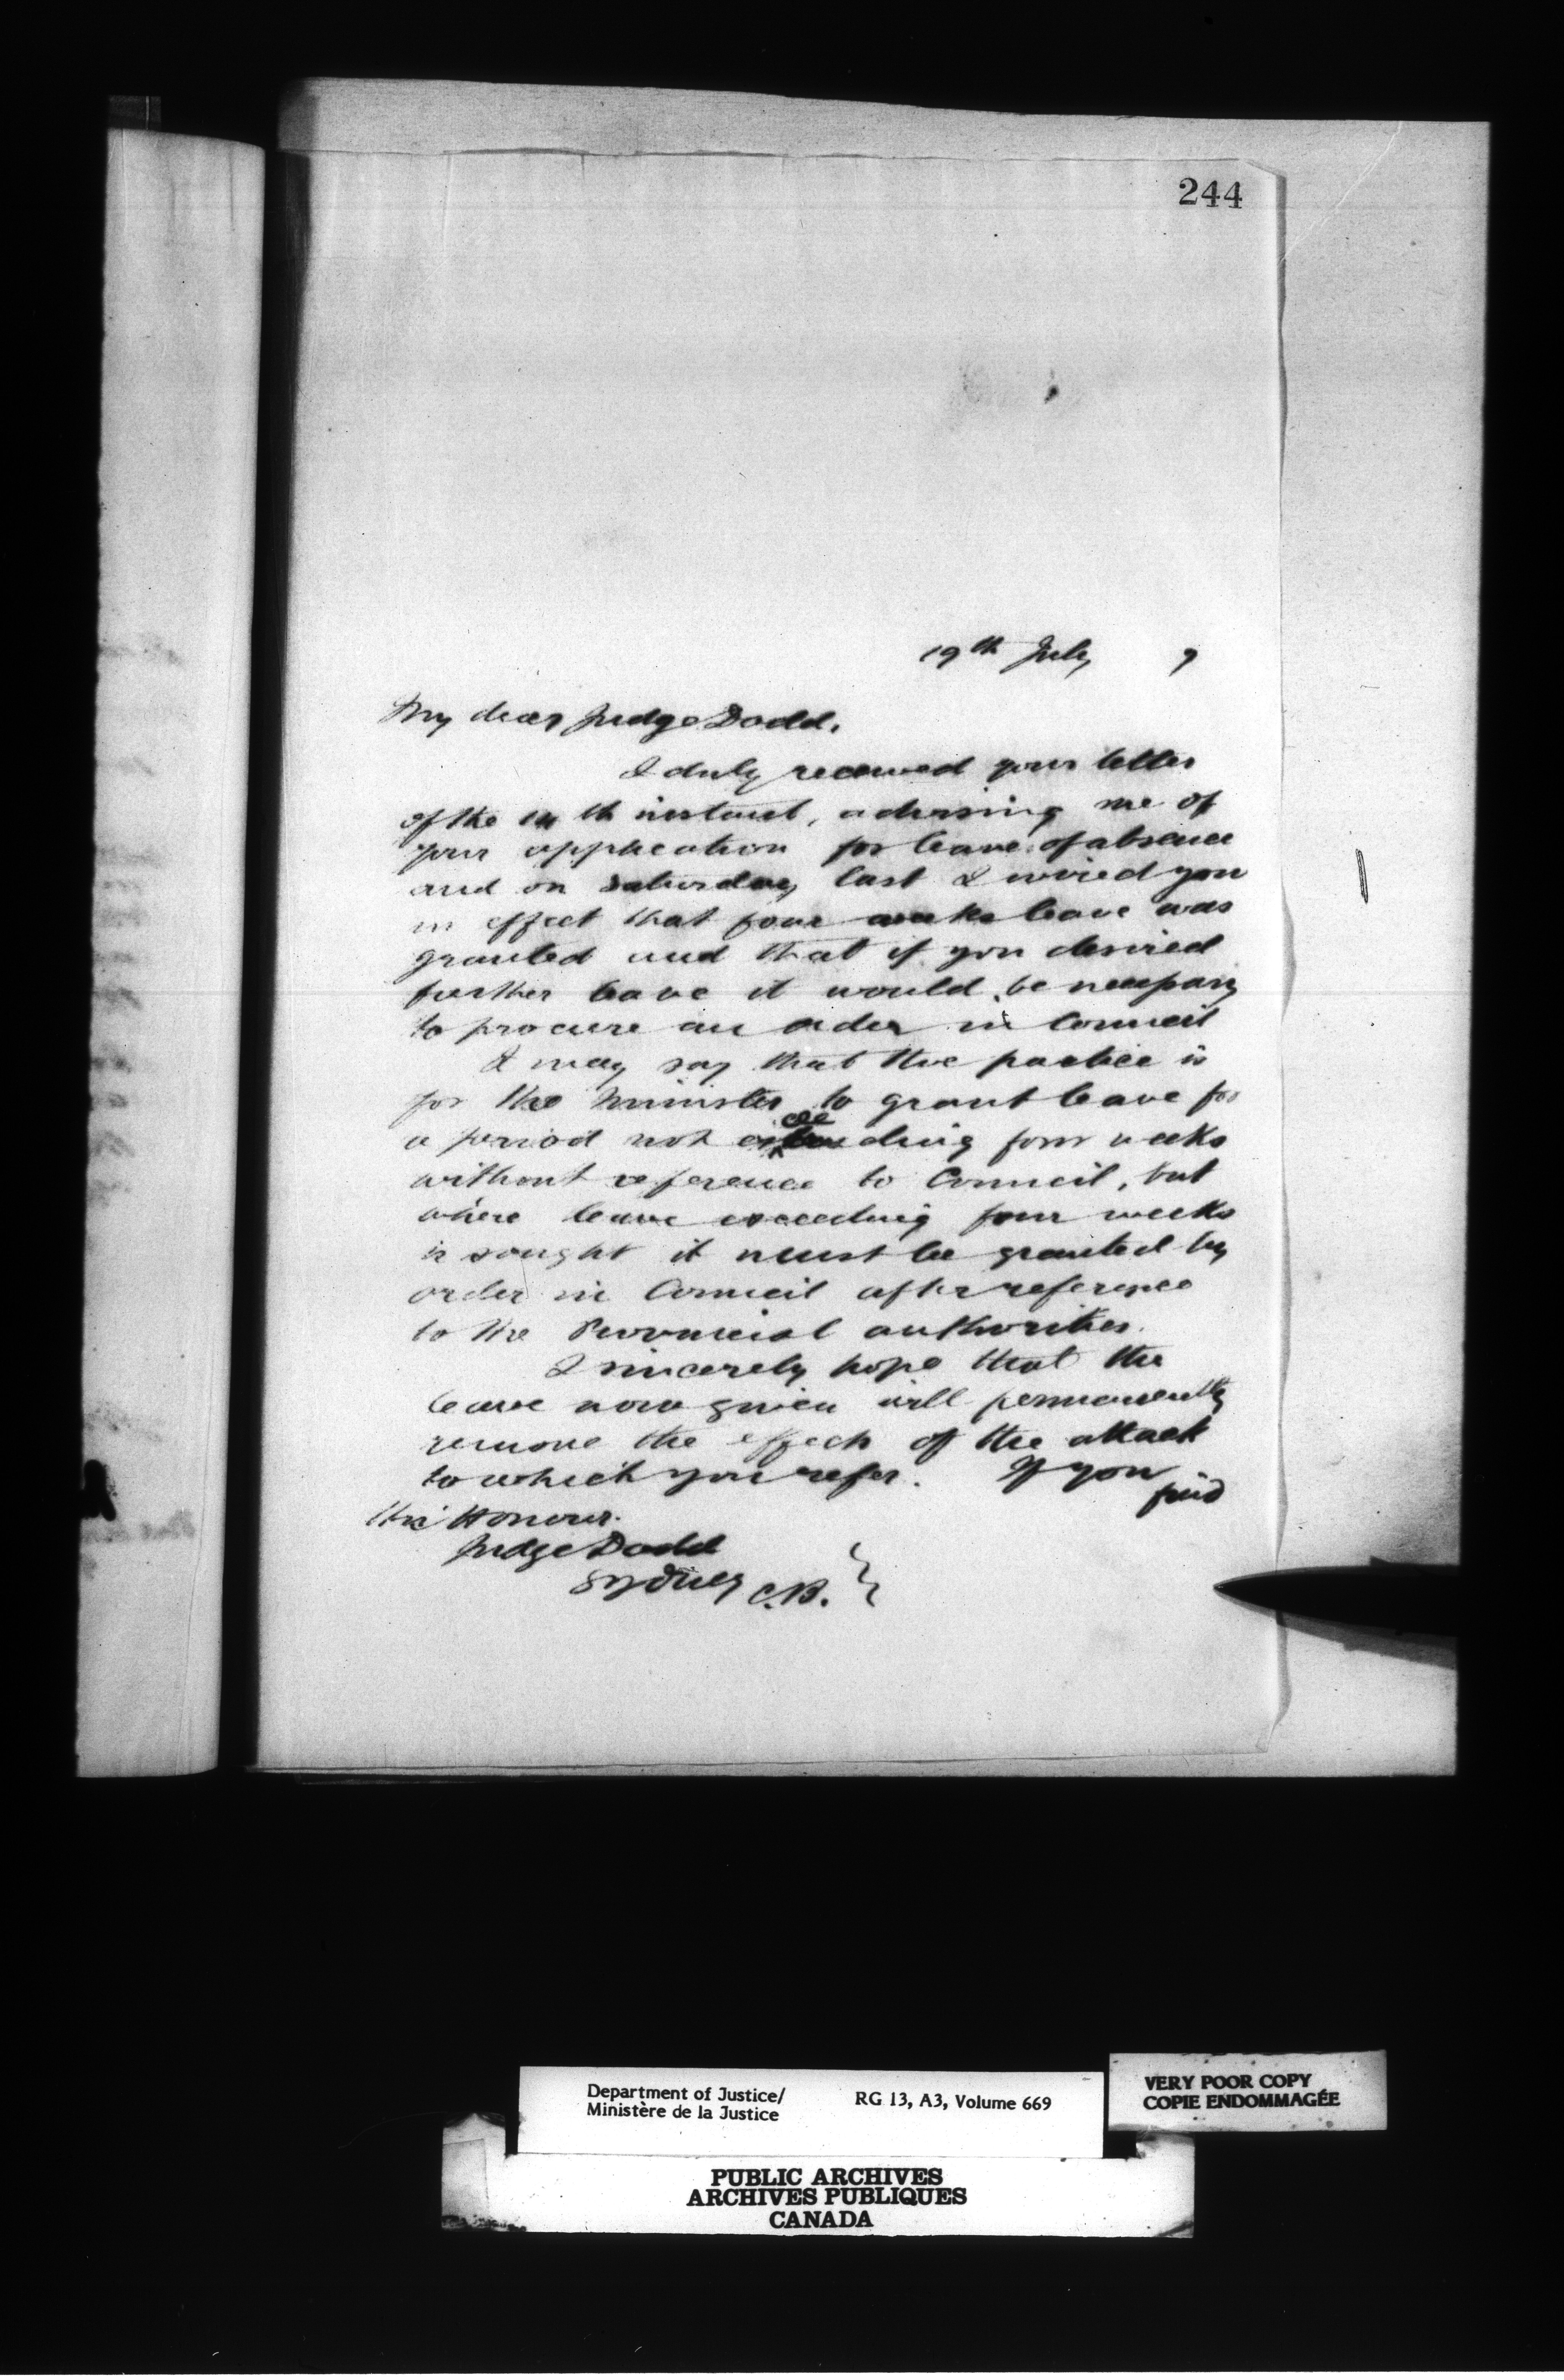 244
19th July 7
My dear Judge Dodd,
I duly received your letter
of the 14th instant, advising me of
your application for leave of absence
and on Saturday last I wired you
in effect that four weeks leave was
granted and that if you desired
further leave it would be necessary
to procure an order in Council
I may say that the practice is
for the Minister to grant leave for
a period not exceeding four weeks
without reference to Council, but
where leave exceeding four weeks
is sought it must be granted by
order in Council after reference
to the Provincial authorities.
I sincerely hope that the
leave now given will permanently
remove the effects of the attack
to which you refer. If you
find
His Honour.
Judge Dodd
Sydney C.B.
Department of Justice/
Ministère de la Justice
RG 13, A3, Volume 669
VERY POOR COPY
COPIE ENDOMMAGÉE
PUBLIC ARCHIVES
ARCHIVES PUBLIQUES
CANADA